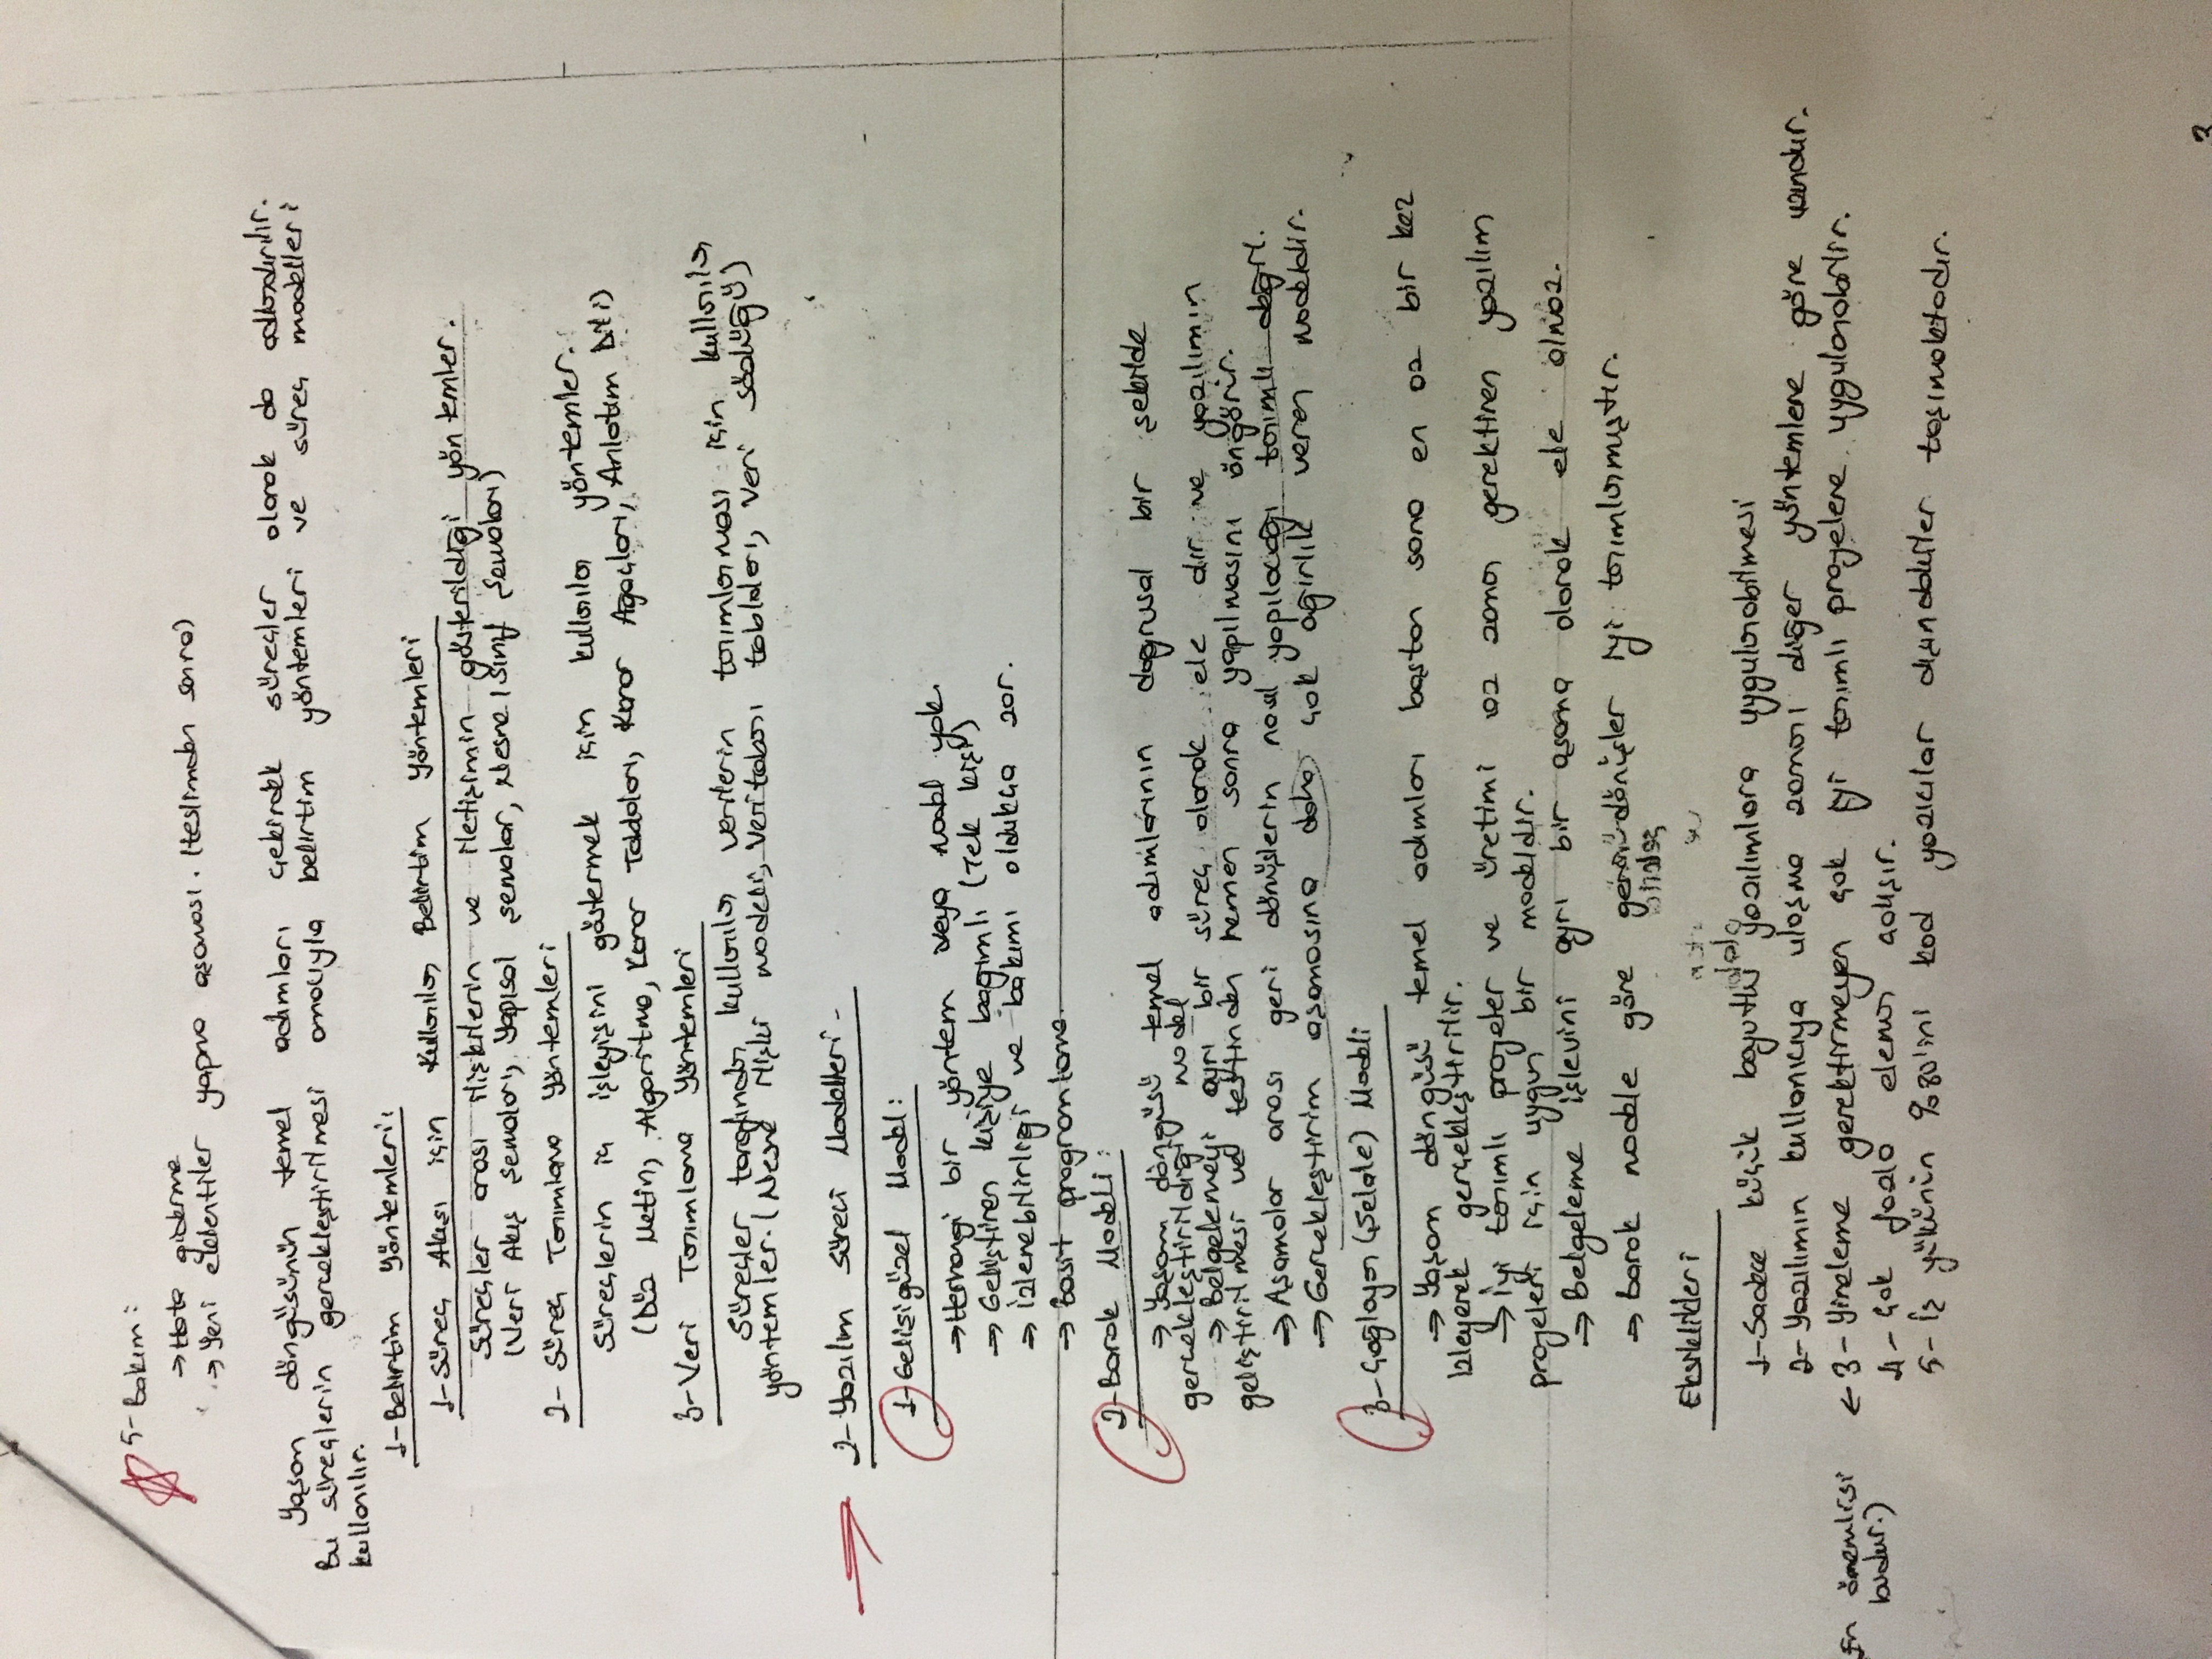 5- Bakım:
→ Hata giderme
→ Yeni eklentiler yapma aşaması. (teslimden sonra)
Yaşam döngüsünün temel adımları çekirdek süreçler olarak da adlandırılır.
Bu süreçlerin gerçekleştirilmesi amacıyla belirtim yöntemleri ve süreç modelleri
kullanılır.
1- Belirtim Yöntemleri:
1- Süreç Akışı için Kullanılan Belirtim Yöntemleri
Süreçler arası ilişkilerin ve iletişimin gösterildiği yöntemler.
(Veri Akış Şemaları, Yapısal şemalar, Nesne / Sınıf Şemaları)
2- Süreç Tanımlama Yöntemleri
Süreçlerin iç işleyişini göstermek için kullanılan yöntemler.
(Düz Metin, Algoritma, Karar Tabloları, Karar Ağaçları, Anlatım Dili)
3- Veri Tanımlama Yöntemleri
Süreçler tarafından kullanılan verilerin tanımlanması için kullanılan
yöntemler. (Nesne ilişki modeli, Veritabanı tabloları, Veri Sözlüğü)
2- Yazılım Süreci Modelleri -
1- Gelişigüzel Model:
→ Herhangi bir yöntem veya model yok.
→ Geliştiren kişiye bağımlı (Tek kişi)
→ İzlenebilirliği ve bakımı oldukça zor.
→ Basit programlama.
2- Barok Modeli:
→ Yaşam döngüsü temel adımlarının doğrusal bir şekilde
gerçekleştirildiği model
→ Belgelemeyi ayrı bir süreç olarak ele alır ve yazılımın
geliştirilmesi ve testinden hemen sonra yapılmasını öngörür.
→ Aşamalar arası geri dönüşlerin nasıl yapılacağı tanımlı değil.
→ Gerçekleştirim aşamasına daha çok ağırlık veren modeldir.
3- Çağlayan (Şelale) Modeli
→ Yaşam döngüsü temel adımları baştan sona en az bir kez
izleyerek gerçekleştirilir.
→ İyi tanımlı projeler ve üretimi az zaman gerektiren yazılım
projeleri için uygun bir modeldir.
→ Belgeleme işlevini ayrı bir aşama olarak ele almaz.
→ Barok modele göre geri dönüşler iyi tanımlanmıştır.
Eksiklikleri
1- Sadece küçük boyutlu yazılımlara uygulanabilmesi
2- Yazılımın kullanıcıya ulaşma zamanı diğer yöntemlere göre uzundur.
En önemlisi ← 3- Yineleme gerektirmeyen çok iyi tanımlı projelere uygulanabilir.
budur.)
4- Çok fazla eleman çalışır.
5- İş yükünün %80'ini kod yazıcılar dışındakiler taşımaktadır.
3